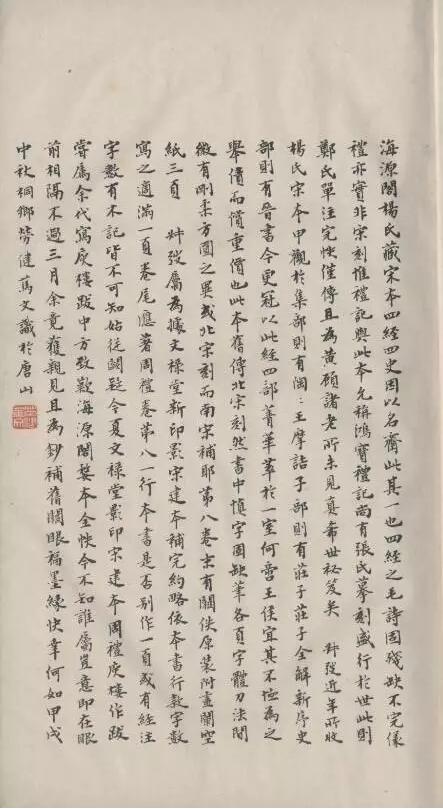 海源閣楊氏藏宋本四經四史因以名齋此其一也四經之毛詩因殘缺不完儀
禮亦實非宋刻惟禮記與此本允稱鴻寶禮記尚有張氏摹刻盛行於世此則
鄭氏單注完帙僅傳且為黃顧諸老所未見真希世秘笈矣 叔弢近年所收
楊氏宋本甲觀於集部則有陶王摩詰子部則有莊子莊子全解新序史
部則有晉書今更冠以此經四部菁華萃於一室何啻王侯宜其不恡為之
舉債而償重價也此本舊傳北宋刻然書中慎字因缺筆各頁字體刀法間
微有剛柔方圓之異或北宋刻而南宋補耶第八卷末有闕佚原裝附畫闌空
紙三頁 叔弢屬為據文祿堂新印影宋建本補完約略依本書行款字數
寫之適滿一頁卷尾應著周禮卷第八一行本書是否別作一頁或有經注
字數有不記皆不可知姑從闕疑今夏文祿堂影印宋建本周禮庚樓作跋
嘗屬余代寫庚樓跋中方致歎海源閣婺本全帙今不知誰屬豈意即在眼
前相隔不過三月余竟獲親見且為鈔補舊闕眼福墨緣快幸何如甲戌
中秋桐鄉勞健篤文識於唐山